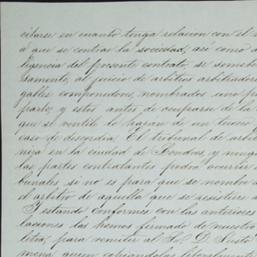 citarse en cuanto tenga relacion con el
á que se contrae la sociedad, así como
ligencia del presente contrato, se somet
samente, al juicio de árbitros arbitrador
gables componedores, nombrados uno p
parte, y estos antes de ocuparse de la
que se ventile lo harán de un tercero
caso de discordia. El tribunal de arb
nirá en la ciudad de Londres, y ning
las partes contratantes podrá ocurrir
bunales si no es para que se nombre
el árbitro de aquella que se resistiere
Y estando conformes con las anteriores
laciones las hemos firmado de nuestro
letra, para remitir al Sr. D. Justo
mena quien expresándolas literalmente